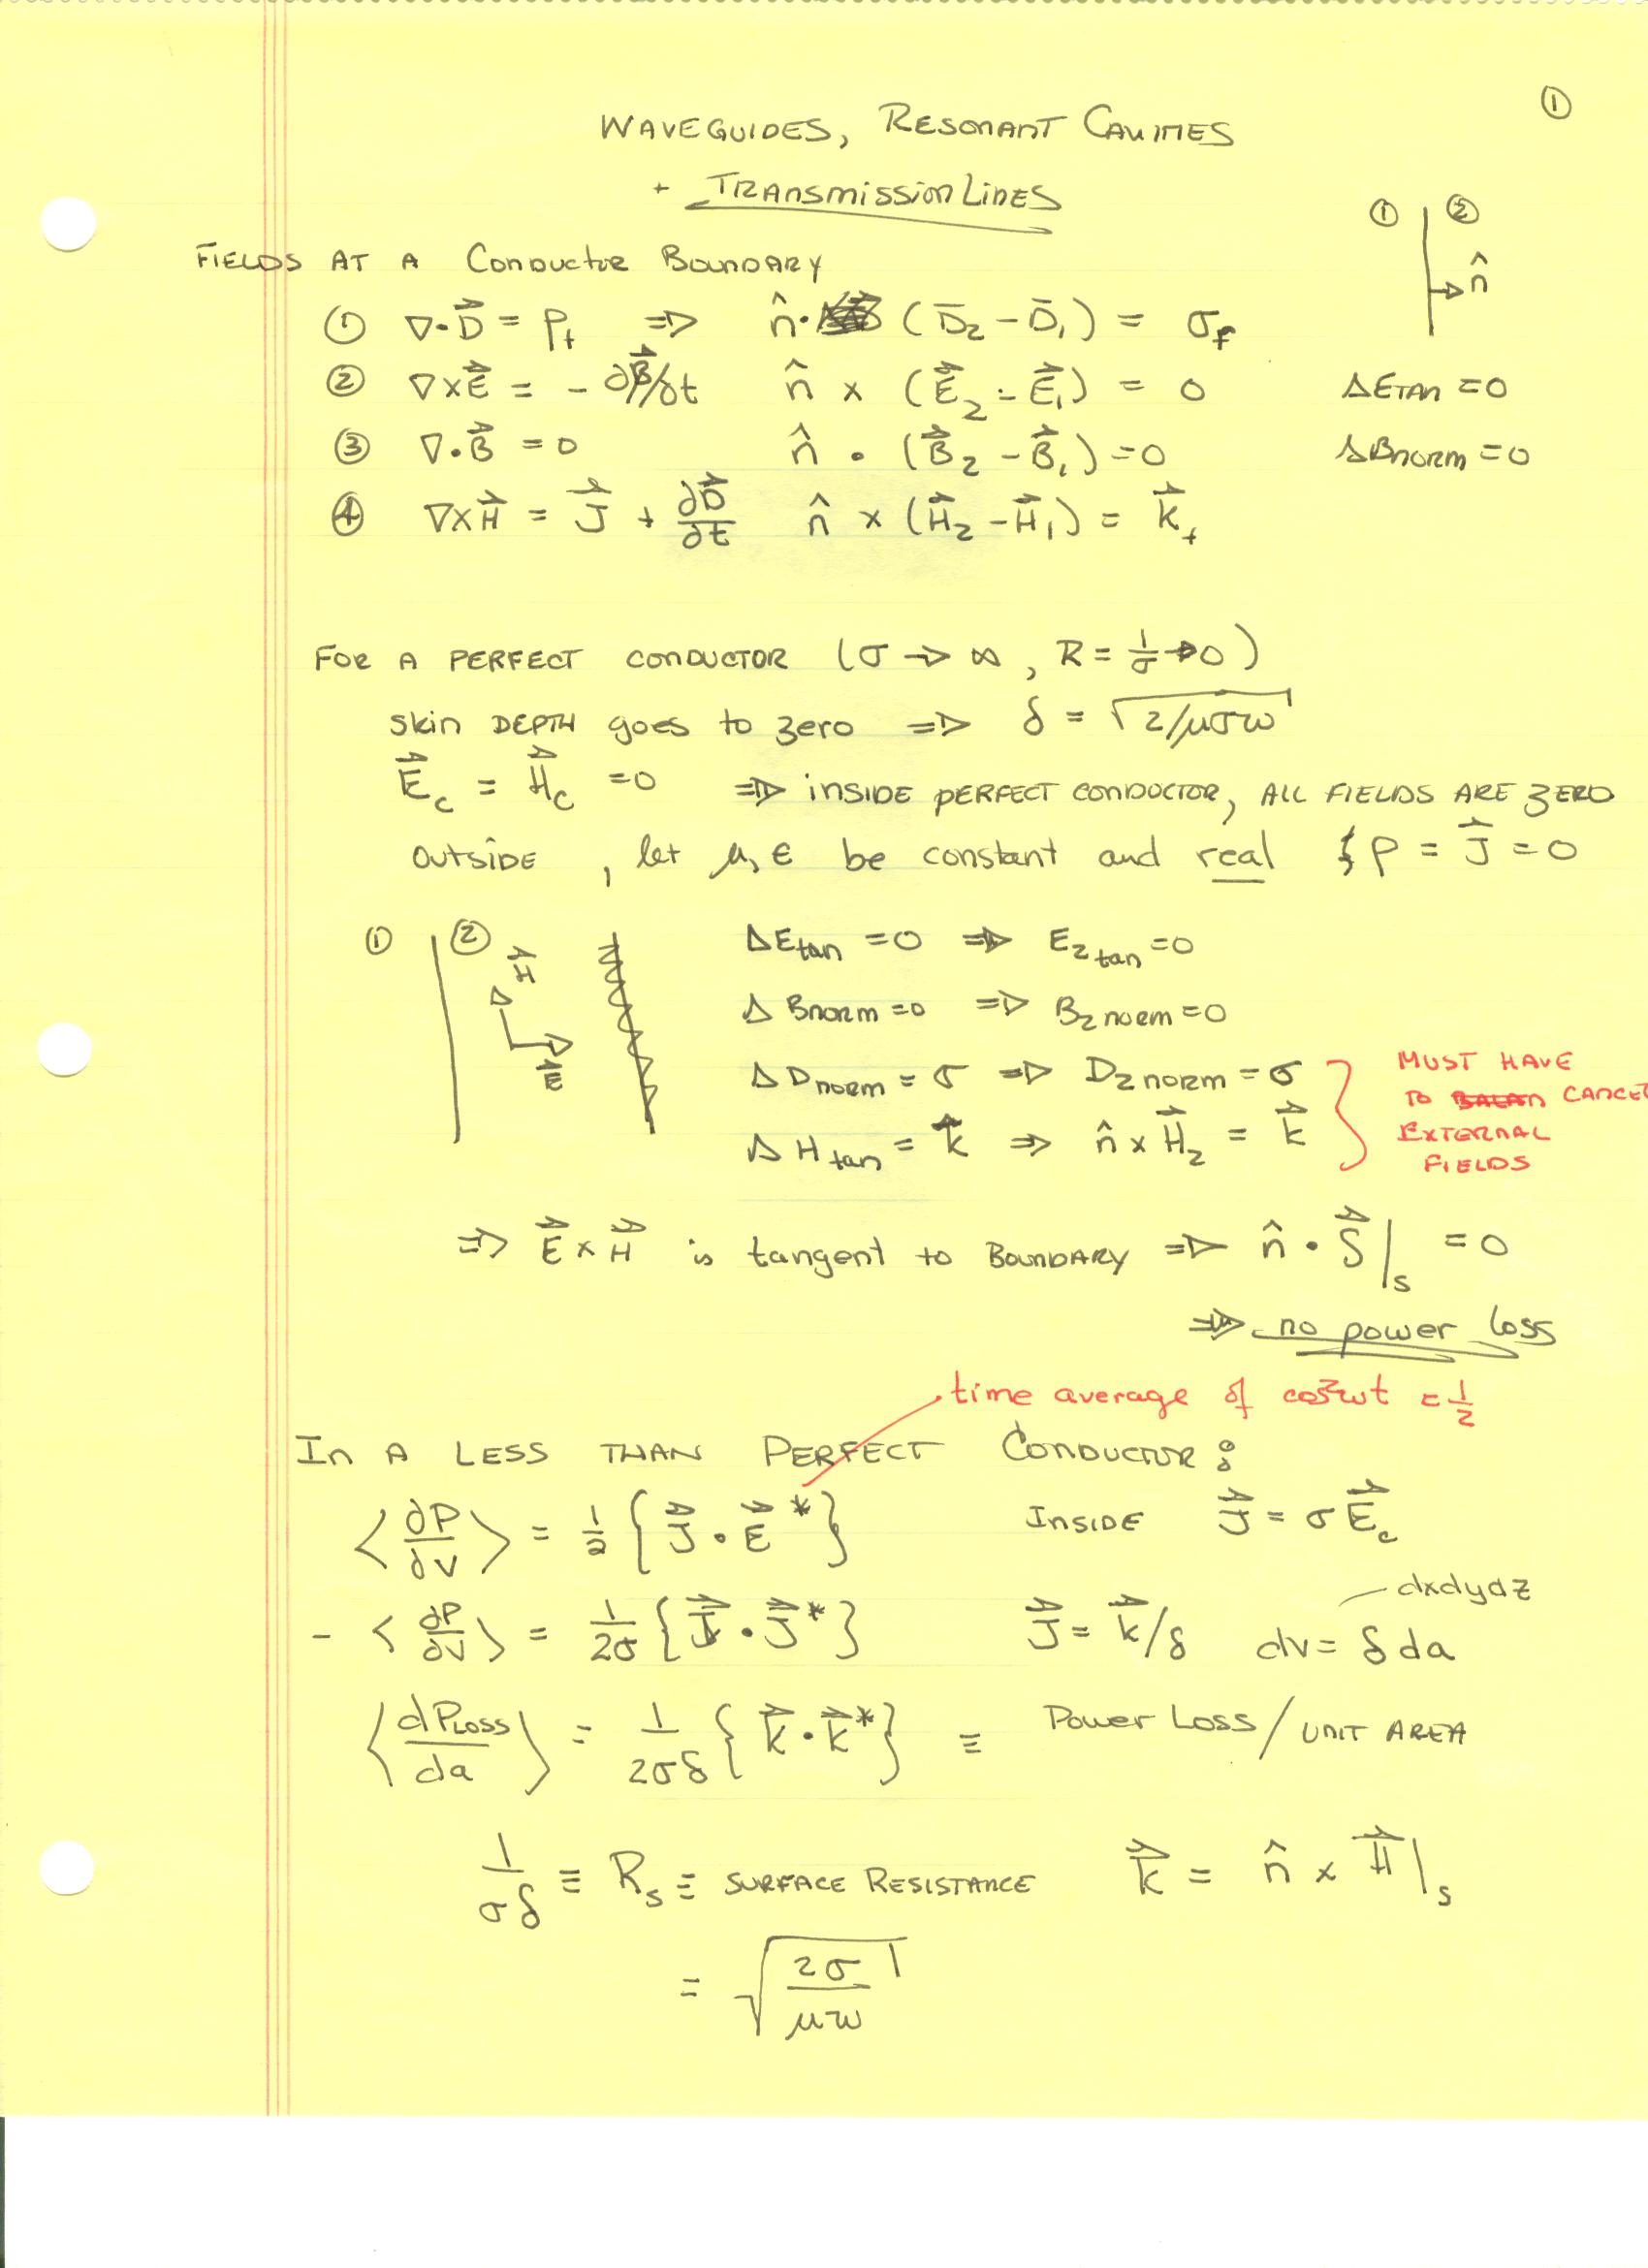 ①
WAVEGUIDES, RESONANT CAVITIES
+ TRANSMISSION LINES
① | ②
n̂
FIELDS AT A CONDUCTOR BOUNDARY
① ∇·D⃗ = ρ_f ⇒ n̂· (D̄₂ - D̄₁) = σ_f
② ∇×E⃗ = - ∂B⃗/∂t n̂ × (E⃗₂ - E⃗₁) = 0 ΔE_TAN = 0
③ ∇·B⃗ = 0 n̂ · (B⃗₂ - B⃗₁) = 0 ΔB_NORM = 0
④ ∇×H⃗ = J⃗ + ∂D⃗/∂t n̂ × (H⃗₂ - H⃗₁) = K⃗_f
FOR A PERFECT CONDUCTOR (σ → ∞, R = 1/σ → 0)
skin DEPTH goes to zero ⇒ δ = √(2/μσω)
E⃗_c = H⃗_c = 0 ⇒ INSIDE PERFECT CONDUCTOR, ALL FIELDS ARE ZERO
OUTSIDE, let μ, ε be constant and real & ρ = J⃗ = 0
① | ② H⃗ E⃗
ΔE_tan = 0 ⇒ E₂tan = 0
ΔB_NORM = 0 ⇒ B₂NORM = 0
ΔD_NORM = σ ⇒ D₂NORM = σ
ΔH_tan = K⃗ ⇒ n̂ × H⃗₂ = K⃗
MUST HAVE
TO CANCEL
EXTERNAL
FIELDS
⇒ E⃗ × H⃗ is tangent to BOUNDARY ⇒ n̂ · S⃗|_s = 0
⇒ no power loss
time average of cos²ωt = 1/2
IN A LESS THAN PERFECT CONDUCTOR:
⟨∂P/∂V⟩ = 1/2 {J⃗ · E⃗*} INSIDE J⃗ = σE⃗_c
- ⟨∂P/∂V⟩ = 1/2σ {J⃗ · J⃗*} J⃗ = K⃗/δ dV = δ da
dxdydz
⟨dP_LOSS/da⟩ = 1/2σδ {K⃗ · K⃗*} ≡ POWER LOSS / UNIT AREA
1/σδ ≡ R_s ≡ SURFACE RESISTANCE K⃗ = n̂ × H⃗|_s
= √(2σ/μω)